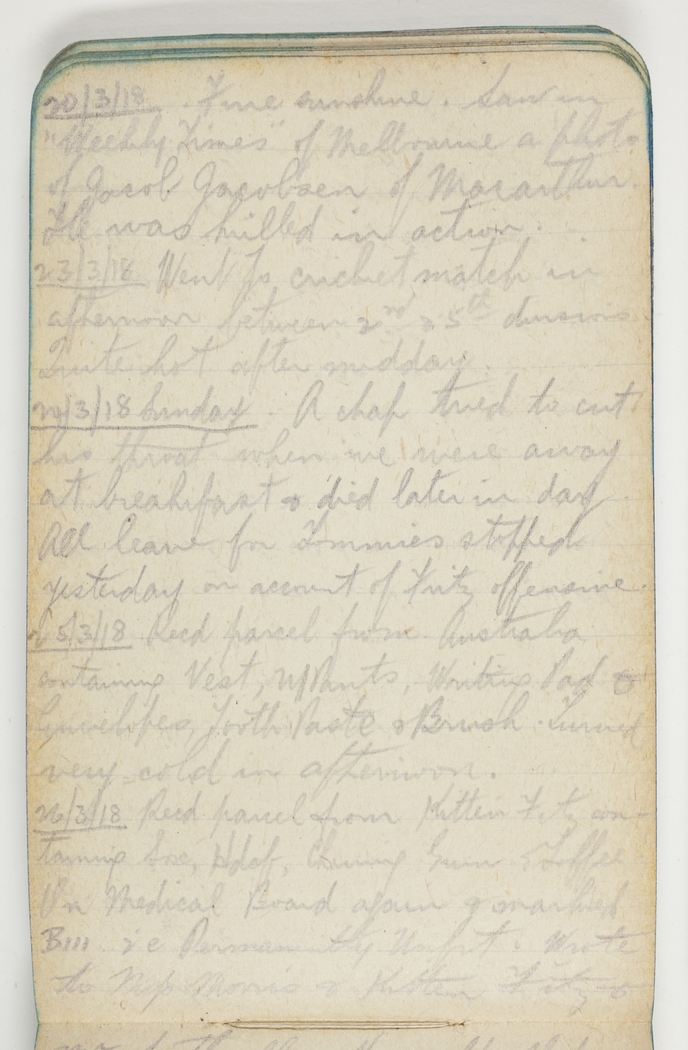 20/3/18. Fine sunshine. Saw in
"Weekly Times" of Melbourne a photo
of Jacob Jacobsen of Macarthur.
He was killed in action.
23/3/18 Went to cricket match in
afternoon between 2nd & 5th divisions
Quite hot after midday.
24/3/18 Sunday. A chap tried to cut
his throat when we were away
at breakfast & died later in day.
All leave for Tommies stopped
yesterday on account of Fritz offensive.
25/3/18 Recd parcel from Australia
containing Vest, U/Pants, Writing Pad &
Envelopes, Tooth Paste & Brush. Turned
very cold in afternoon.
26/3/18 Recd parcel from Kitten Fitz con-
taining Sox, Hdkf, Chewing Gum & Toffee
On Medical Board again & marked
B111 ie Permanently Unfit. Wrote
to Morris & Kitten Fitz &